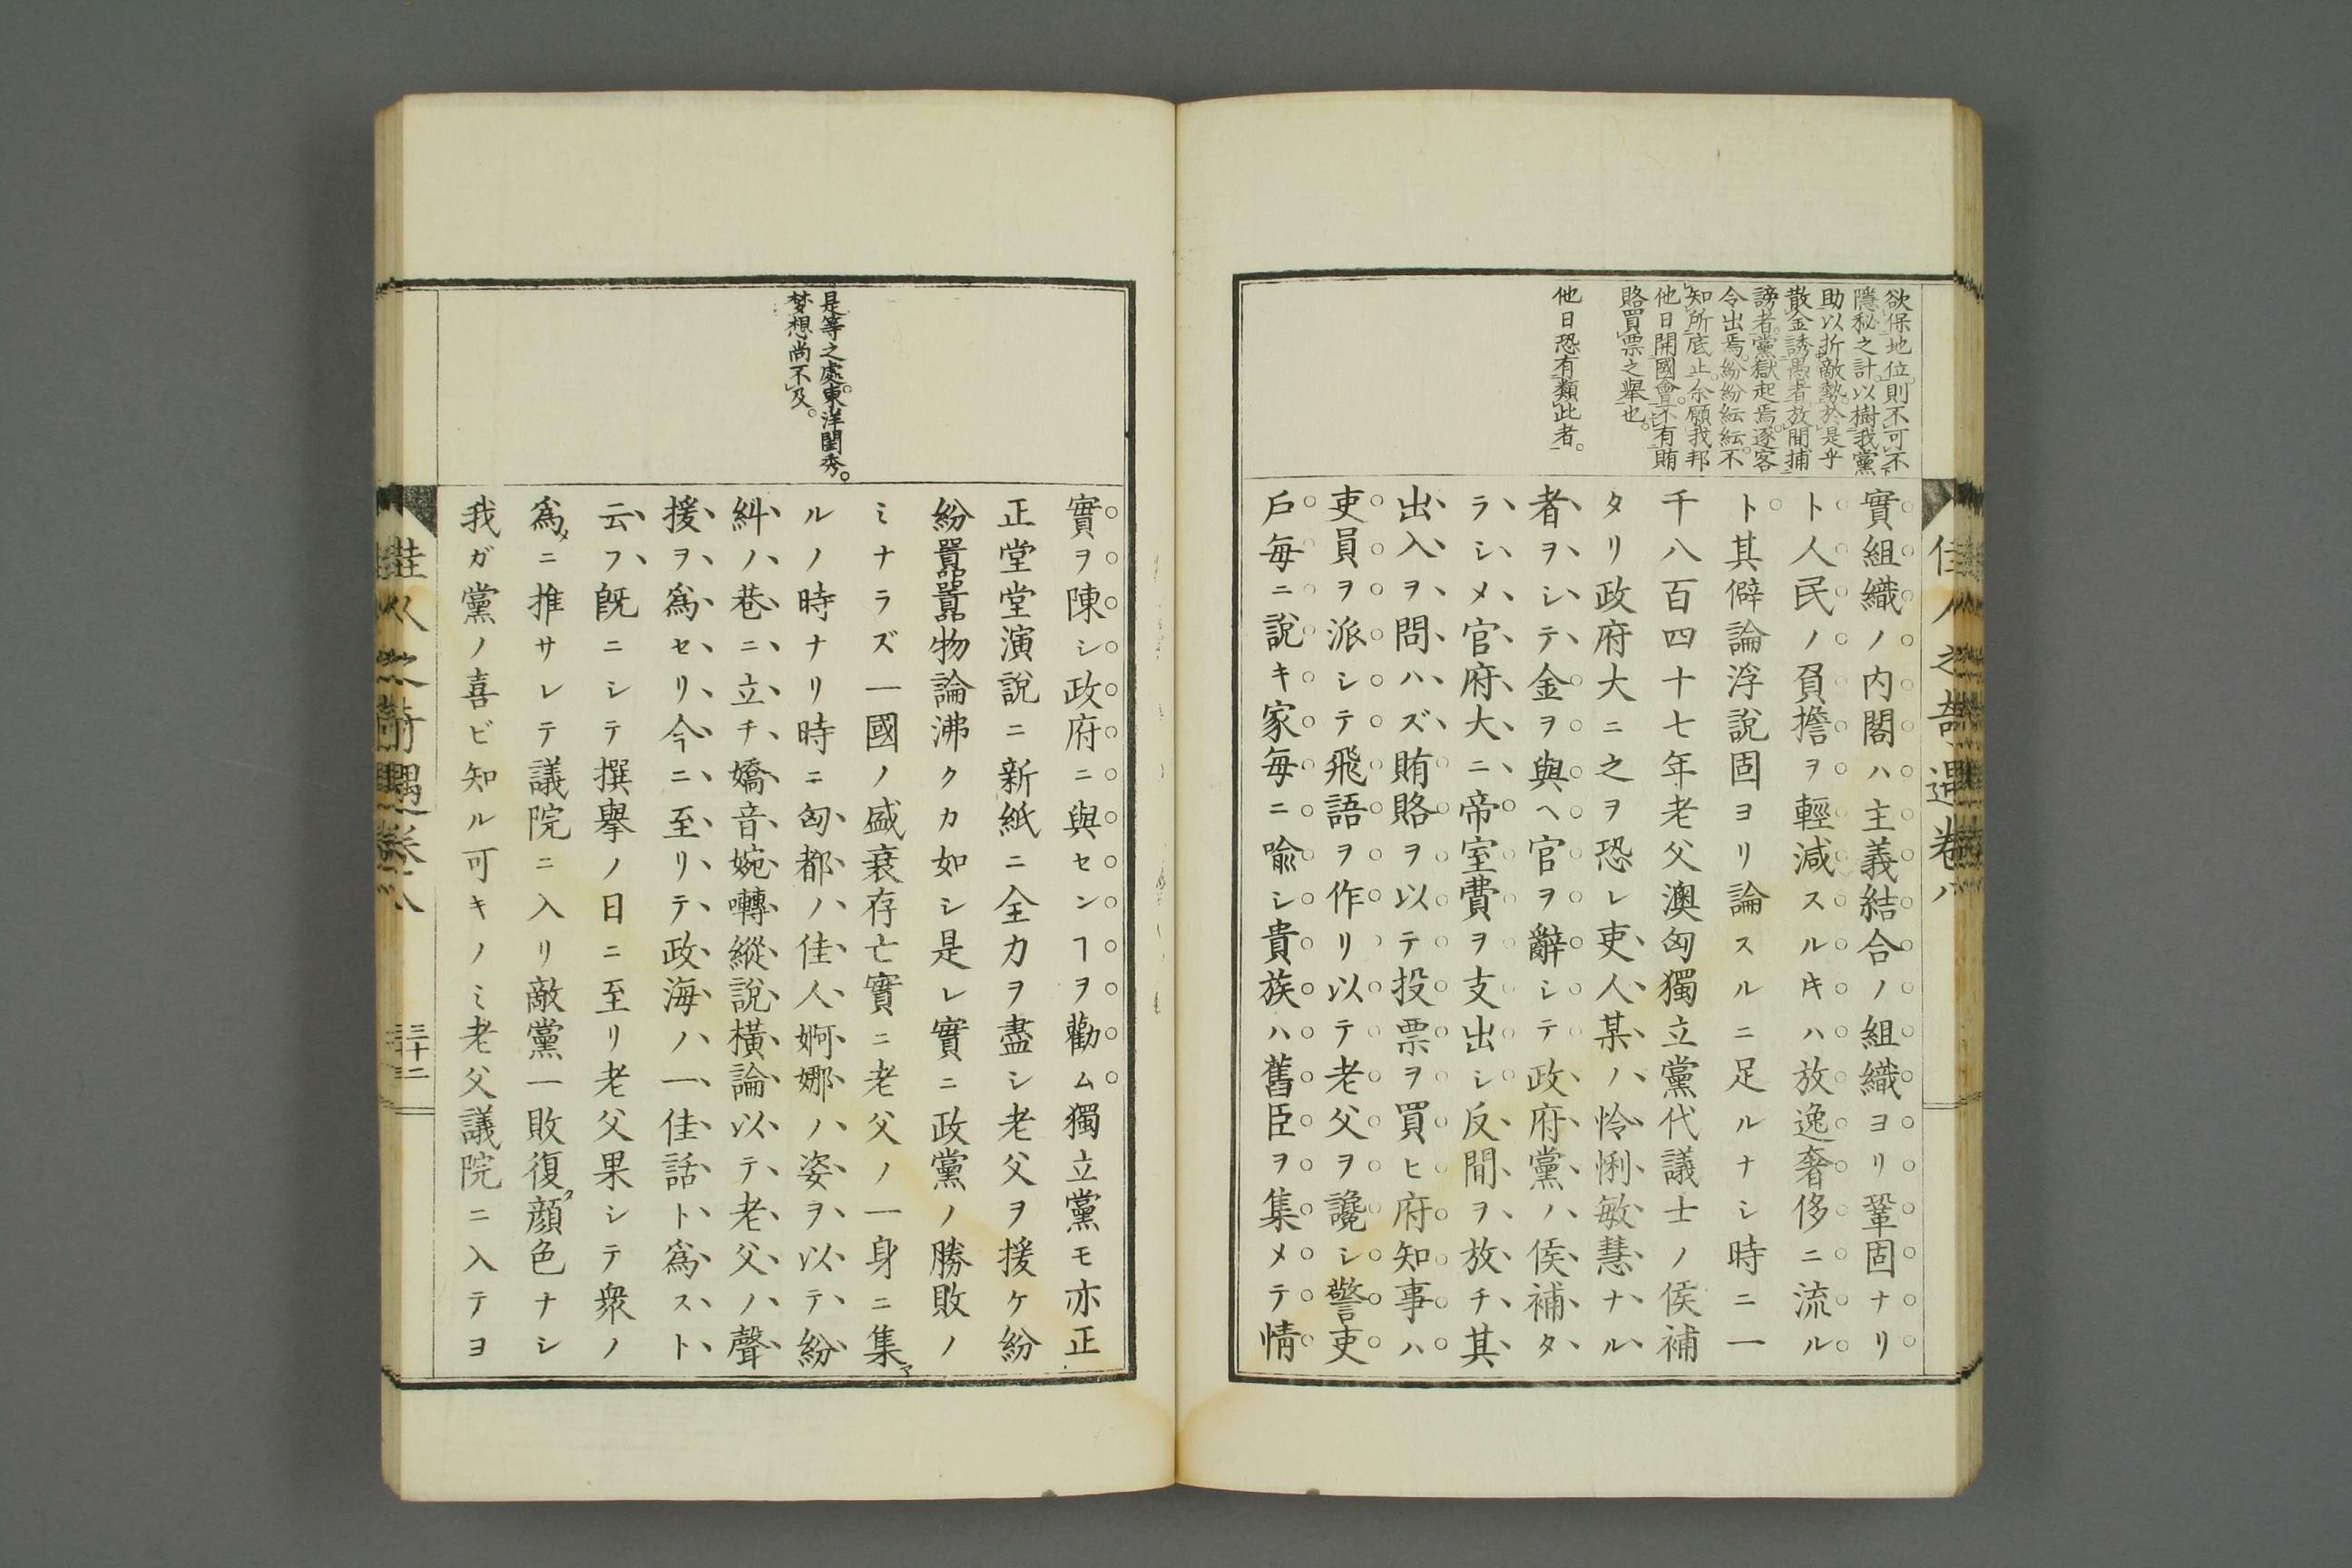 佳人之奇遇卷八
欲保地位。則不可不
隱秘之計。以樹我黨
助以折敵勢。於是乎
散金誘愚者。放間捕
謗者。黨獄起焉。逐客
令出焉。紛紛紜紜。不
知所底止。余願我邦
他日開國會。不有賄
賂買票之舉也。
他日恐有類此者。
實組織ノ内閣ハ主義結合ノ組織ヨリ鞏固ナリ
ト人民ノ負擔ヲ輕減スルキハ放逸奢侈ニ流ル
ト其僻論浮說固ヨリ論スルニ足ルナシ時ニ一
千八百四十七年老父澳匈獨立黨代議士ノ侯補
タリ政府大ニ之ヲ恐レ吏人某ノ怜悧敏慧ナル
者ヲシテ金ヲ與ヘ官ヲ辭シテ政府黨ノ侯補タ
ラシメ官府大ニ帝室費ヲ支出シ反間ヲ放チ其
出入ヲ問ハズ賄賂ヲ以テ投票ヲ買ヒ府知事ハ
吏員ヲ派シテ飛語ヲ作リ以テ老父ヲ讒シ警吏
戶每ニ說キ家每ニ喩シ貴族ハ舊臣ヲ集メテ情
是等之處。東洋閨秀。
梦想尚不及。
實ヲ陳シ政府ニ與センヿヲ勸ム獨立黨モ亦正
正堂堂演說ニ新紙ニ全力ヲ盡シ老父ヲ援ケ紛
紛囂囂物論沸クカ如シ是レ實ニ政黨ノ勝敗ノ
ミナラズ一國ノ盛衰存亡實ニ老父ノ一身ニ集マ
ルノ時ナリ時ニ匈都ノ佳人婀娜ノ姿ヲ以テ紛
糾ノ巷ニ立チ嬌音婉囀縱說橫論以テ老父ノ聲
援ヲ爲セリ今ニ至リテ政海ノ一佳話ト爲スト
云フ旣ニシテ撰擧ノ日ニ至リ老父果シテ衆ノ
爲メニ推サレテ議院ニ入リ敵黨一敗復タ顔色ナシ
我ガ黨ノ喜ビ知ル可キノミ老父議院ニ入テヨ
佳人之奇遇卷八
三十二